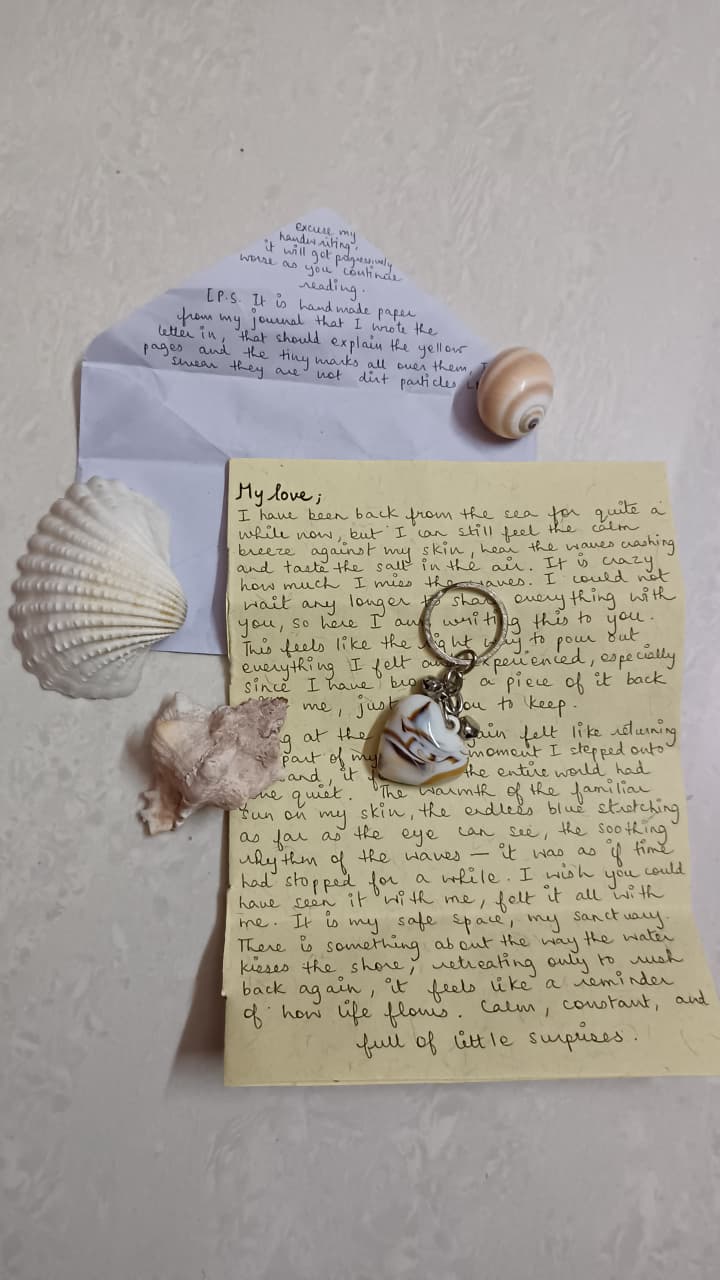 excuse my
handwriting,
it will get pogressively
worse as you continue
reading.
[P.S. It is handmade paper
from my journal that I wrote the
letter in, that should explain the yellow
pages and the tiny marks all over them, I
swear they are not dirt particles
My love;
I have been back from the sea for quite a
while now, but I can still feel the calm
breeze against my skin, hear the waves crashing
and taste the salt in the air. It is crazy
how much I miss the waves. I could not
wait any longer to share everything with
you, so here I am writing this to you.
This feels like the right way to pour out
everything I felt and experienced, especially
since I have a piece of it back
me, just you to keep.
at the again felt like returning
part of my moment I stepped onto
it the entire world had
quiet. The warmth of the familiar
sun on my skin, the endless blue stretching
as far as the eye can see, the soothing
rhythm of the waves — it was as if time
had stopped for a while. I wish you could
have seen it with me, felt it all with
me. It is my safe space, my sanctuary.
There is something about the way the water
kisses the shore, retreating only to rush
back again, it feels like a reminder
of how life flows. Calm, constant, and
full of little surprises.